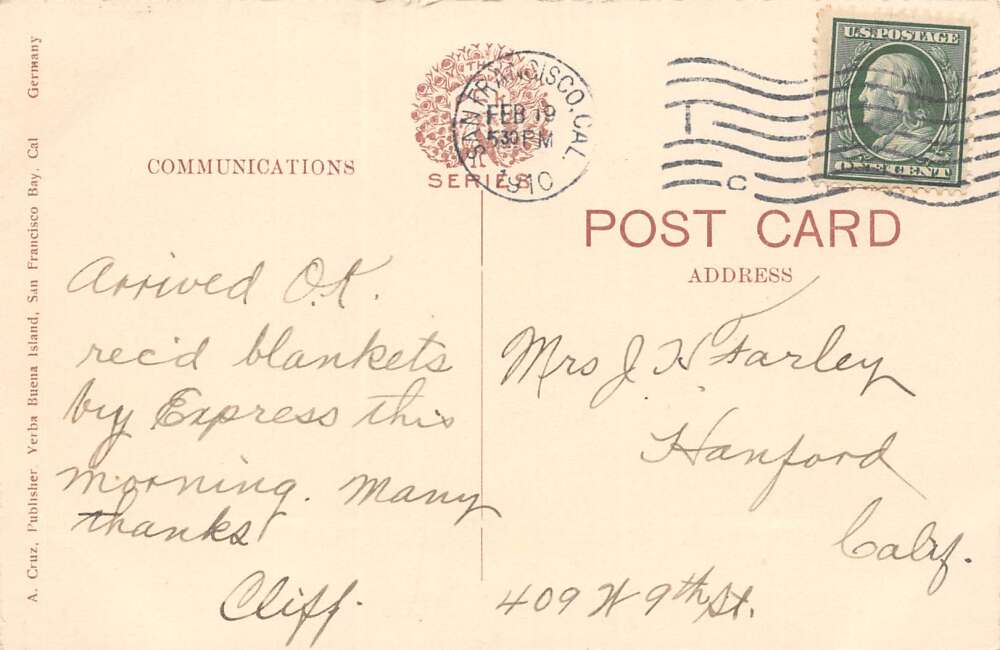 A. Cruz, Publisher, Yerba Buena Island, San Francisco Bay, Cal Germany
COMMUNICATIONS
SERIES
SAN FRANCISCO, CAL.
FEB 19
530 PM
1910
C
U.S. POSTAGE
ONE CENT
POST CARD
ADDRESS
Arrived O.K.
rec'd blankets
by Express this
morning. Many
thanks
Cliff.
Mrs J H Farley
Hanford
Calif.
409 W 9th St.